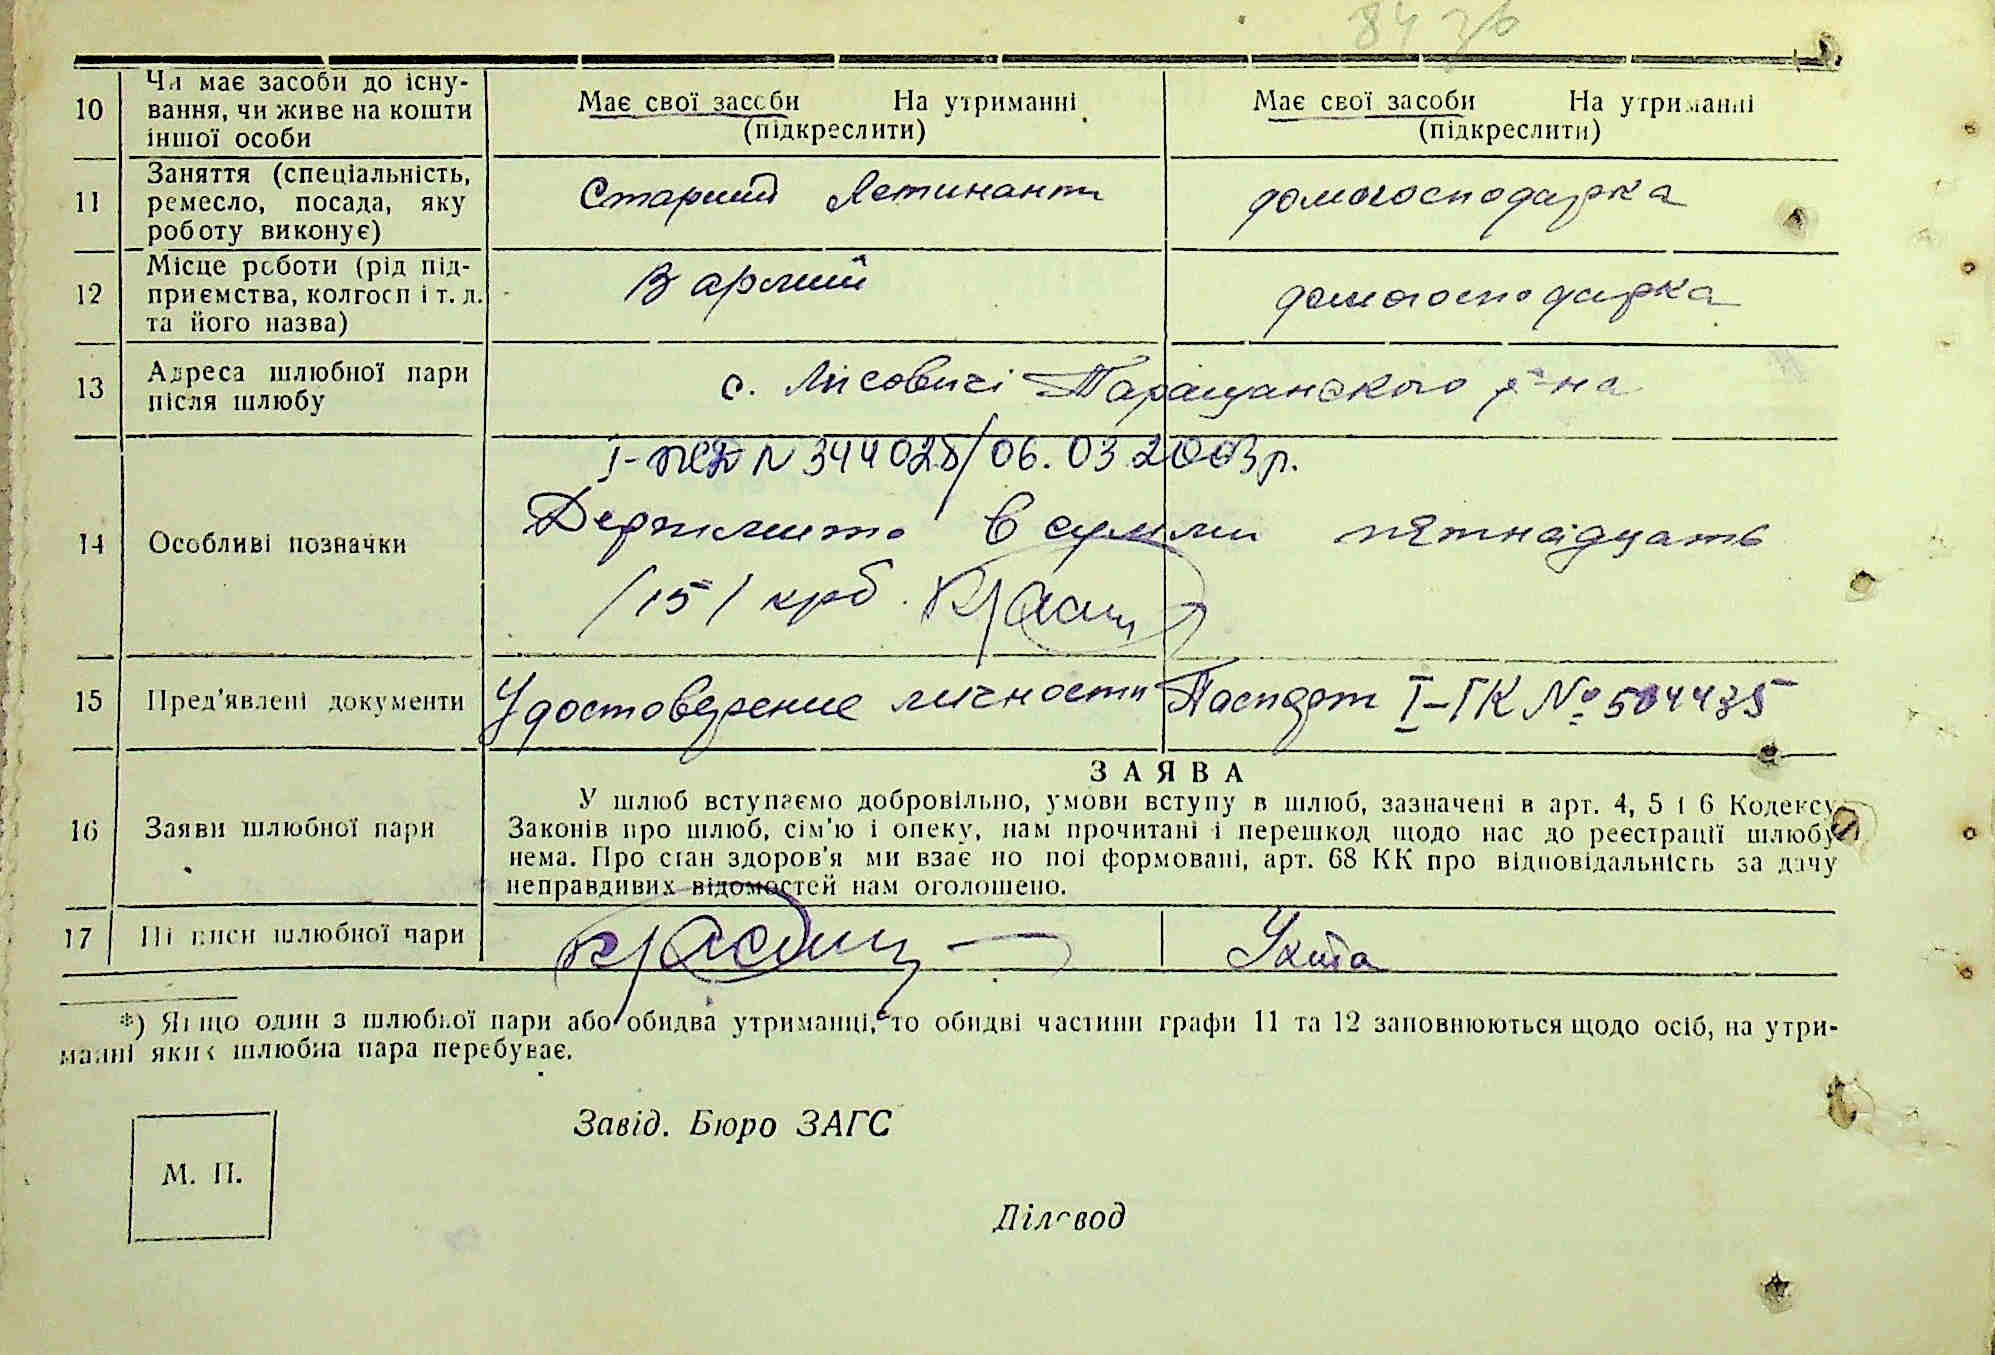 84 зв
10
Чи має засоби до існу-
вання, чи живе на кошти
іншої особи
Має свої засоби На утриманні
(підкреслити)
Має свої засоби На утриманні
(підкреслити)
11
Заняття (спеціальність,
ремесло, посада, яку
роботу виконує)
Старший Летинант
домогосподарка
12
Місце роботи (рід під-
приємства, колгосп і т. д.
та його назва)
В армиї
домогосподарка
13
Адреса шлюбної пари
після шлюбу
с. Лісовичі Таращанского р-на
14
Особливі позначки
N 344028/06.03.2003р.
Держмито в сумми пятнадцать
/15/ крб.
15
Пред'явлені документи
Удостоверение личности
Паспорт I-ГК № 504435
16
Заяви шлюбної пари
ЗАЯВА
У шлюб вступаємо добровільно, умови вступу в шлюб, зазначені в арт. 4, 5 і 6 Кодексу
Законів про шлюб, сім'ю і опеку, нам прочитані і перешкод щодо нас до реєстрації шлюбу
нема. Про стан здоров'я ми взаємно поінформовані, арт. 68 КК про відповідальність за дачу
неправдивих відомостей нам оголошено.
17
Підписи шлюбної пари
*) Якщо один з шлюбної пари або обидва утриманці, то обидві частини графи 11 та 12 заповнюються щодо осіб, на утри-
манні яких шлюбна пара перебуває.
М. П.
Завід. Бюро ЗАГС
Діловод